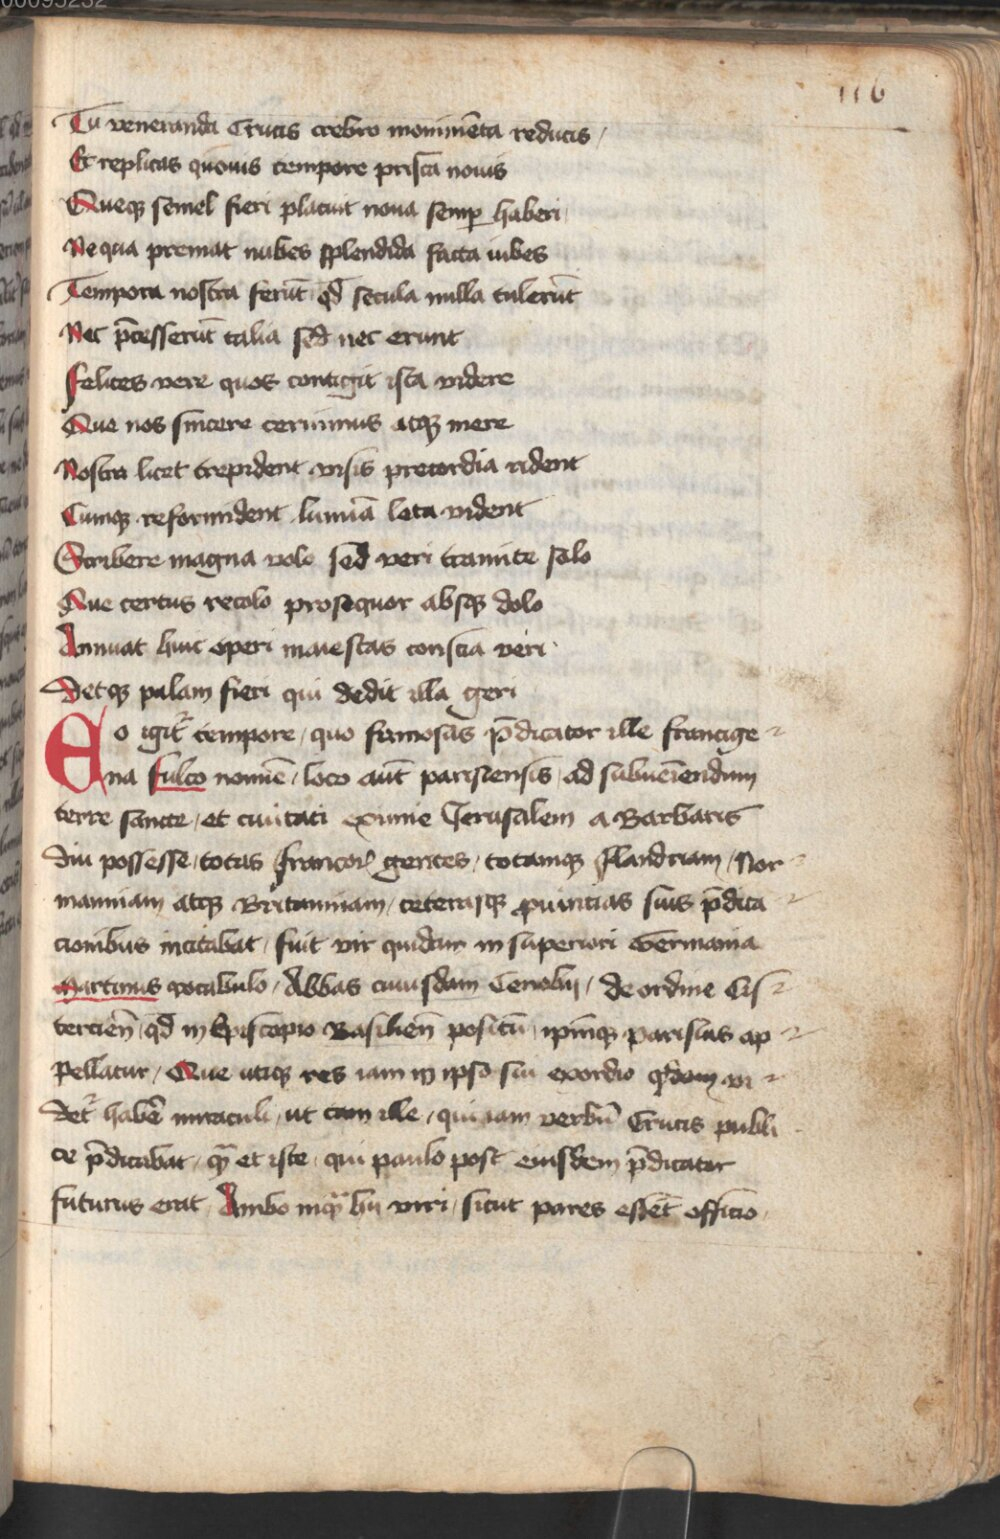 00095252
116
Tu veneranda Crucis crebro monimēta reducis /
Et replicas quouis tempore prisca nouis
Queqꝫ semel fieri placuit noua semꝑ haberi
Ne qua premat nubes splendida facta iubes
Tempora nostra ferūt qd̄ secula nulla tulerūt
Nec p̄cesserūt talia sed nec erunt
Felices vere quos contigit ista videre
Que nos sincere cernimus atqꝫ mere
Nostra licet trepident visis precordia rident
Cumqꝫ reformident lumiā leta vident
Scribere magna volo sed veri tramite solo
Que certus recolo prosequor absqꝫ dolo
Annuat huic operi maiestas conscia veri ·
Detqꝫ palam fieri qui dedit illa geri
Eo igit᷑ tempore / quo famosus p̄dicator ille francige
na fulco nomiē / loco aūt parisiensis / ad subueīendum
terre sancte / et ciuitati eximie Jerusalem a Barbaris
diu possesse / totas francoꝝ gentes / totamqꝫ flandriam / Nor
manniam atqꝫ Britanniam / ceterasqꝫ ꝓuincias suis p̄dica
cionibus incitabat / fuit vir quidam in superiori Germania
Martinus vocabulo / Abbas cuiusdam Cenobij / de ordine Cis
tercieñ qd̄ in Episcopio Basilieñ positū ip̄mqꝫ parisius ap
pellatur / Que utiqꝫ res iam in ipso sui exordio qͥddam vi
det᷑ habē miraculi / ut tam ille / qui iam verbū Crucis publi
ce p̄dicabat / qͣ et iste / qui paulo post eiusdem p̄dicator
futurus erat / Ambo inqͣ hii viri / sicut pares essēt officio /